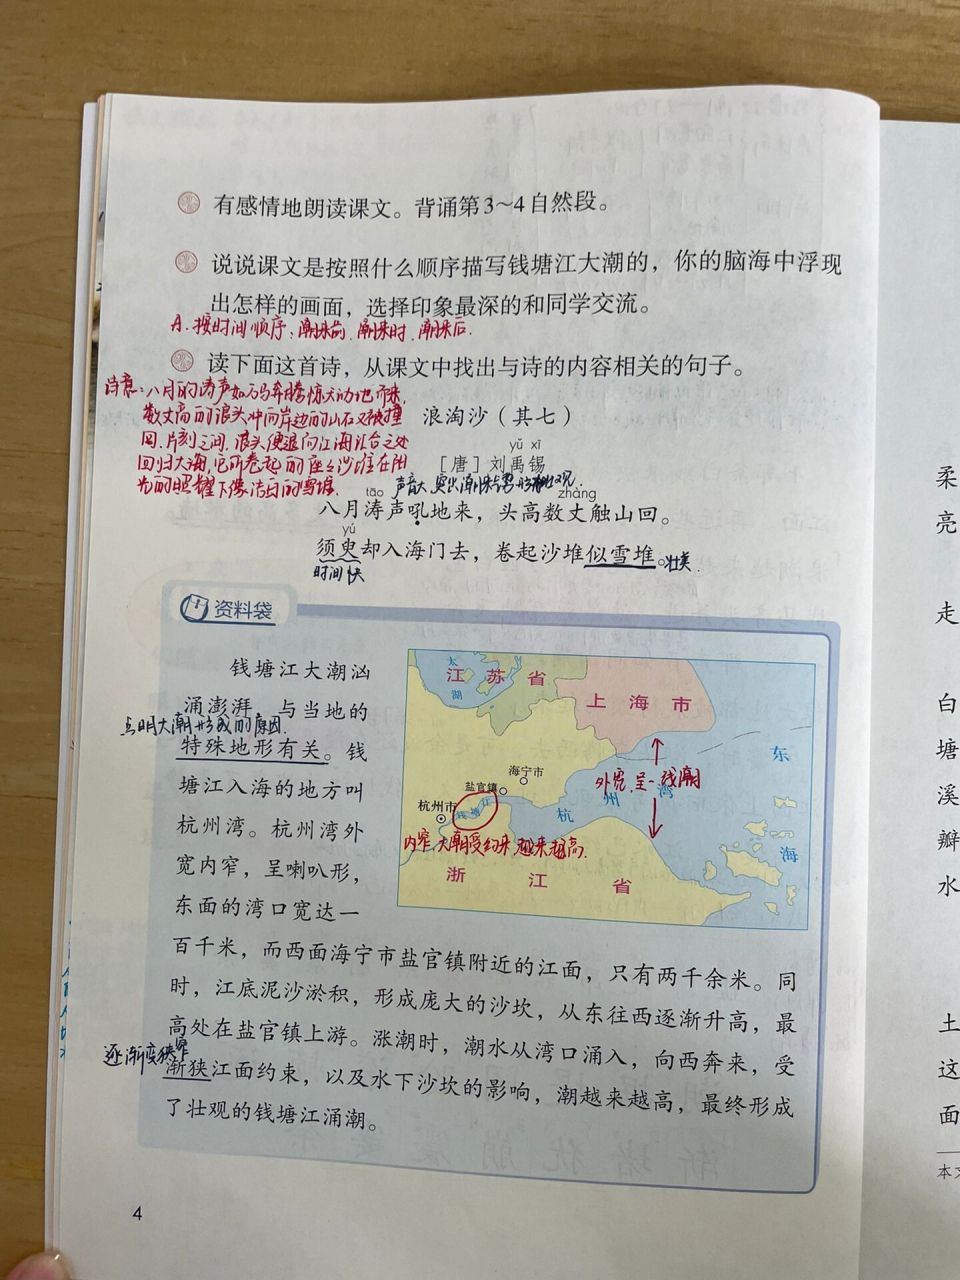 有感情地朗读课文。背诵第3~4自然段。
说说课文是按照什么顺序描写钱塘江大潮的，你的脑海中浮现
出怎样的画面，选择印象最深的和同学交流。
A. 按时间顺序：潮来前、潮来时、潮来后.
读下面这首诗，从课文中找出与诗的内容相关的句子。
诗意：八月的涛声如万马奔腾惊天动地而来,
数丈高的浪头冲向岸边的山石又被撞
回.片刻之间.浪头便退向江海汇合之处
回归大海,它所卷起的座座沙堆在阳
光的照耀下像洁白的雪堆.
浪淘沙（其七）
yǔ xī
［唐］刘禹锡
声音大.突出潮来
壮观.
tāo
zhàng
八月涛声吼地来，头高数丈触山回。
yú
须臾却入海门去，卷起沙堆似雪堆。
时间快
壮美.
资料袋
钱塘江大潮汹
涌澎湃，与当地的
点明大潮形成的原因.
特殊地形有关。钱
塘江入海的地方叫
杭州湾。杭州湾外
宽内窄，呈喇叭形，
东面的湾口宽达一
百千米，而西面海宁市盐官镇附近的江面，只有两千余米。同
时，江底泥沙淤积，形成庞大的沙坎，从东往西逐渐升高，最
高处在盐官镇上游。涨潮时，潮水从湾口涌入，向西奔来，受
逐渐变狭窄
渐狭江面约束，以及水下沙坎的影响，潮越来越高，最终形成
了壮观的钱塘江涌潮。
太
湖
江苏省
上海市
东
海
海宁市
盐官镇
杭州市
钱塘江
杭州湾
外宽,呈一线潮
内窄,大潮受约束,越来越高.
浙江省
4
柔
亮
走
白
塘
溪
瓣
水
土
这
面
本文